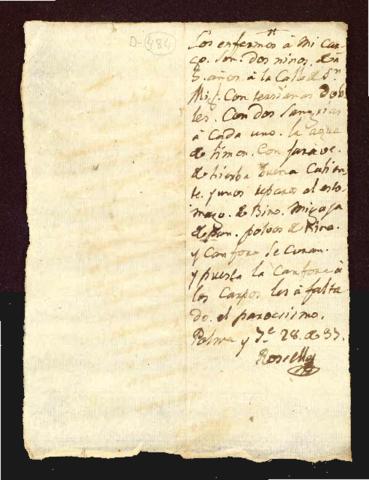 D-484
Los enfermos à Mi car
go. Son. dos niños, de à
5. años à la Cala de Sn.
Mig. Con tersianas Dob
les. Con dos Sangrias
à Cada uno. la agua
de limon. Con jarave.
de hierba buena Calien
te. y unos reparos al esto
mago. de Bino. Migaja
de pan. polvos de Kina.
y Canfora se Curan.
y puesta la Canfora à
los Carpos les à falta
do. el parocsismo.
Palma y 28. de 37.
Rosello